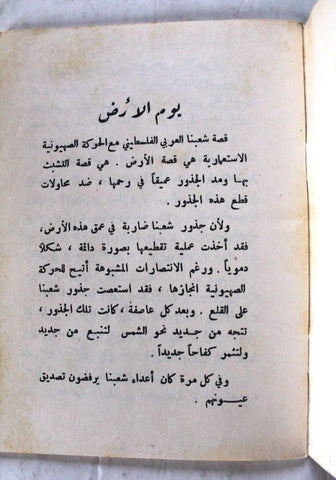 يوم الأرض
قصة شعبنا العربي الفلسطيني مع الحركة الصهيونية
الاستعمارية هي قصة الأرض . هي قصة التشبث
بها ومد الجذور عميقاً في رحمها ، ضد محاولات
قطع هذه الجذور .
ولأن جذور شعبنا ضاربة في عمق هذه الأرض،
فقد أخذت عملية تقطيعها بصورة دائمة ، شكلا
دموياً . ورغم الانتصارات المشبوهة أتيح للحركة
الصهيونية انجازها ، فقد استعصت جذور شعبنا
على القلع . وبعد كل عاصفة ، كانت تلك الجذور ،
تتجه من جديد نحو الشمس لتنبع من جديد
ولتثمر كفاحاً جديداً .
وفي كل مرة كان أعداء شعبنا يرفضون تصديق
عيونهم .